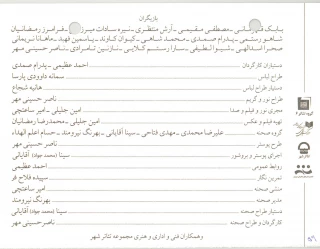 بازیگران
بابک قهرمانی ـ مصطفی مقیمی ـ آرش منتظری ـ نیره سادات ـ فرامرز رمضانیان
شاهو رستمی ـ پدرام صمدی ـ محمد شاهی ـ کیوان کاوند ـ یاسمین فهید ـ ماهانا نریمانی
صحرا اسدالهی ـ شیوا لطیفی ـ سارا رستم کلایی ـ نازنین نامرادی ـ ناصر حسینی مهر
دستیاران کارگردان احمد عظیمی ـ پدرام صمدی
طراح لباس سمانه داوودی پارسا
دستیار طراح لباس هانیه شجاع
طراح نور و گریم ناصر حسینی مهر
مجری نور و فیلم و صدا امین جلیلی ـ امیر ساعتچی
تهیه فیلم و عکس امین جلیلی ـ محمدرضا رمضانیان
گروه صحنه علیرضا محمدی ـ مهدی فتاحی ـ سینا آقایانی ـ بهرنگ نیرومند ـ حسام اعلم الهداء
طرح پوستر ناصر حسینی مهر
اجرای پوستر و بروشور سینا (محمد جواد) آقایانی
روابط عمومی احمد عظیمی
تمرین نگار سپیده فلاح فر
منشی صحنه امیر ساعتچی
مدیر صحنه بهرنگ نیرومند
دستیار طراح صحنه سینا (محمد جواد) آقایانی
کارگردان و طراح صحنه ناصر حسینی مهر
وهمکاران فنی و اداری و هنری مجموعه تئاتر شهر